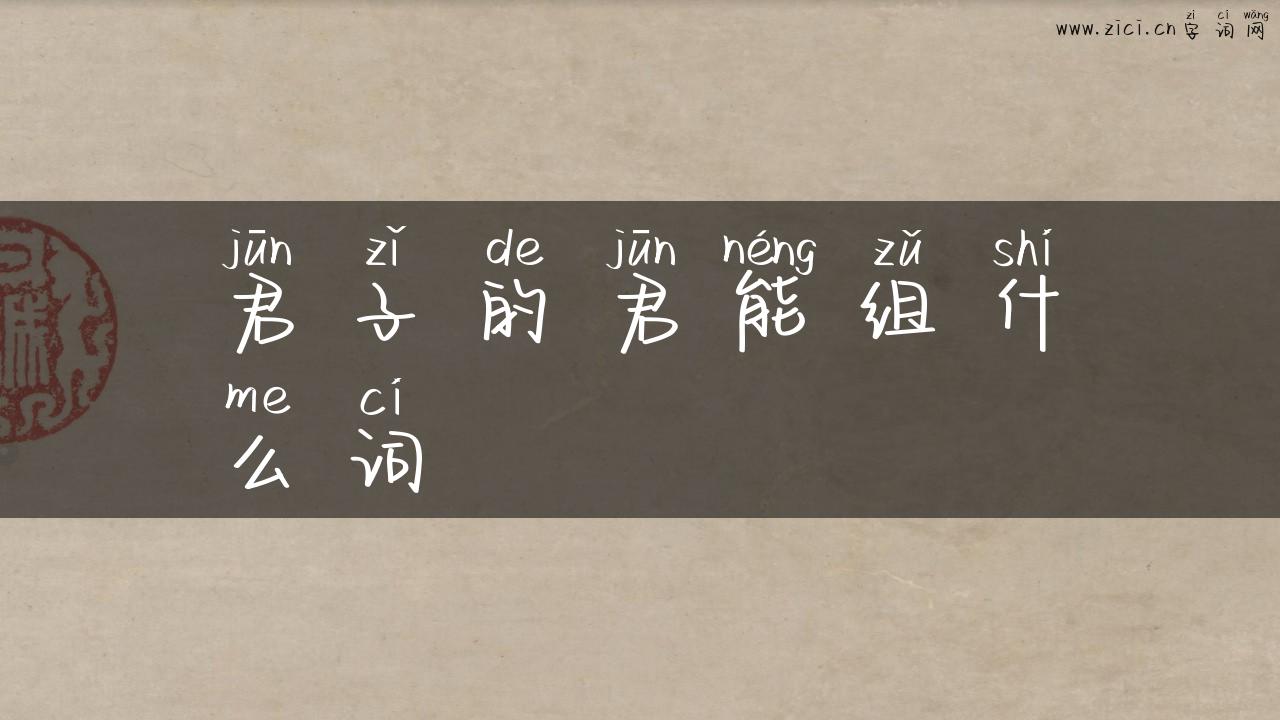 zì cí wǎng
www.zici.cn 字词网
jūn zǐ de jūn néng zǔ shí
君子的君能组什
me cí
么词